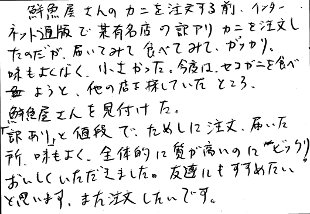 鮮魚屋さんのカニを注文する前、インター
ネット通販で某有名店の訳アリカニを注文し
たのだが、届いてみて食べてみて、ガッカリ。
味もよくなく、小さかった。今度は、セコガニを食べ
ようと、他の店を探していたところ、
鮮魚屋さんを見付けた。
「訳あり」と値段で、ためしに注文、届いた
所、味もよく、全体的に質が高いのに"ビックリ"
おいしくいただきました。友達にもすすめたい
と思います。また注文したいです。